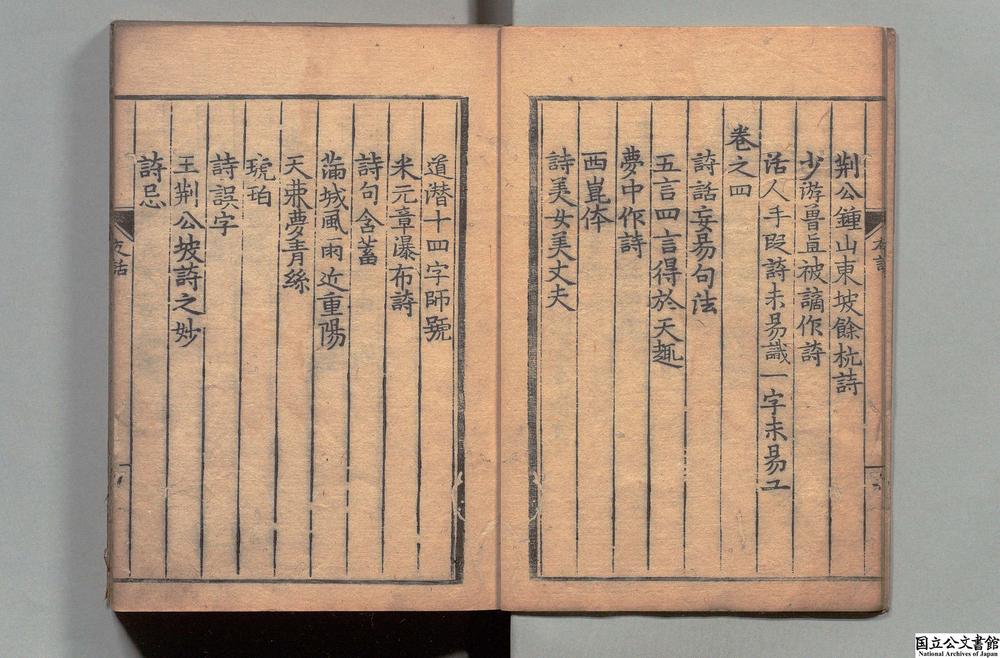 荆公鍾山東坡餘杭詩
少游魯直被謫作詩
活人手段詩未易識一字未易工
卷之四
詩話妄易句法
五言四言得於天趣
夢中作詩
西崑体
詩美女美丈夫
道潛十四字師號
米元章瀑布詩
詩句含蓄
滿城風雨近重陽
天棘夢青絲
琥珀
詩誤字
王荆公坡詩之妙
詩忌
夜話
国立公文書館
National Archives of Japan